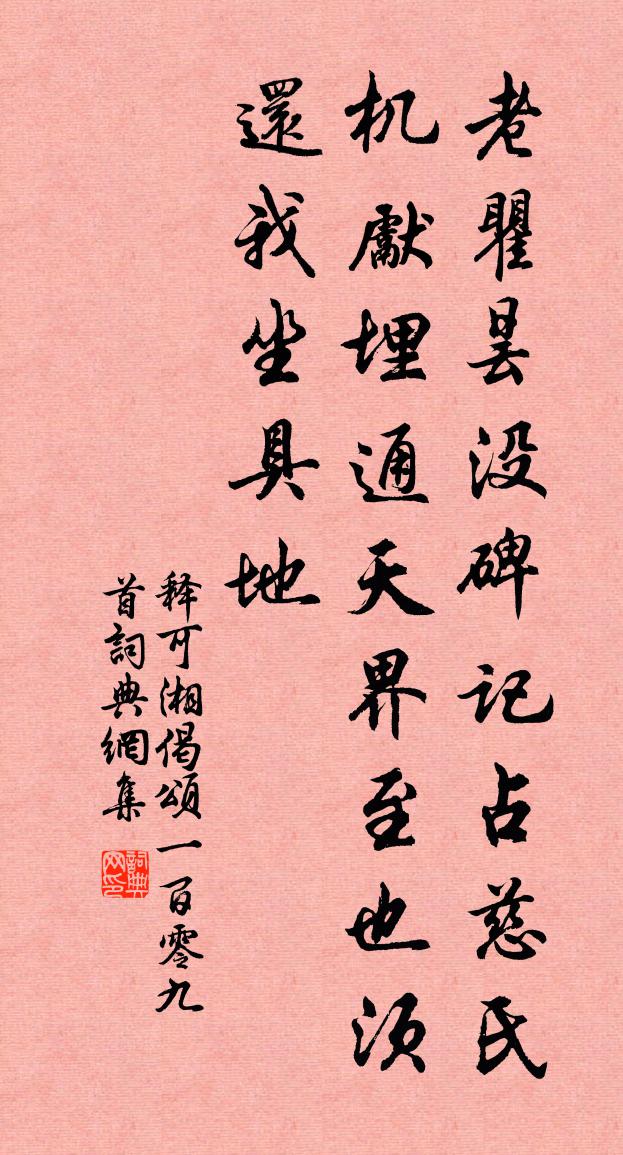 老瞿昙没碑记占慈氏
机獻埋通天界至也须
還我坐具地
释可湘偈頌一百零九
首詞典網集
詞典网印